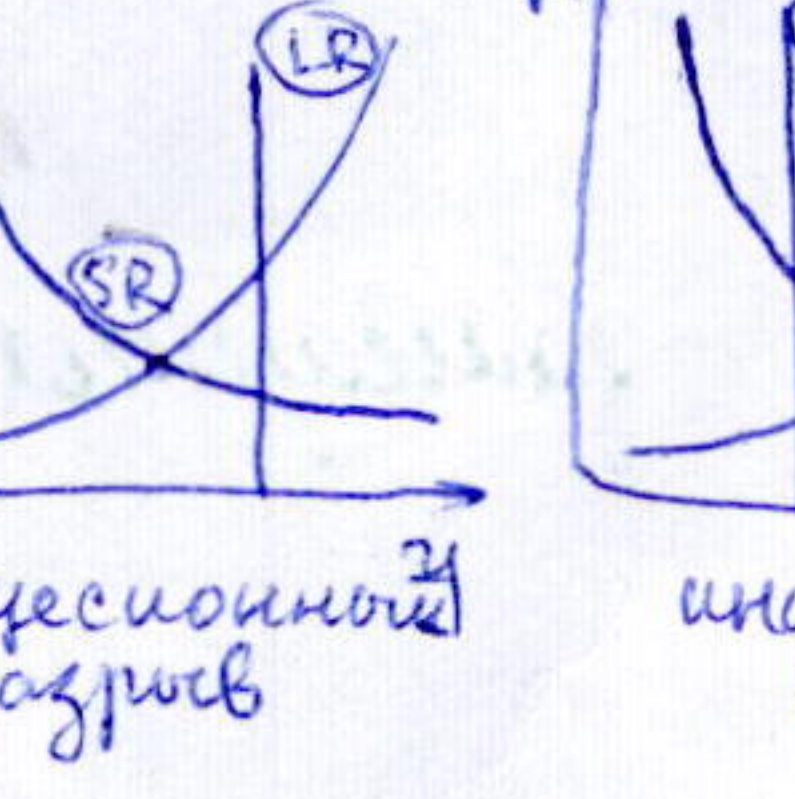 LR
SR
цесионный
азрыв
инф